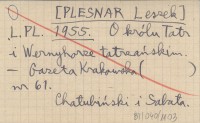 [PLESNAR Leszek]
L.PL. 1955. O królu Tatr
i Wernyhorze tatrzańskim.
– Gazeta Krakowska (
nr 61.
Chałubiński i Sabała.